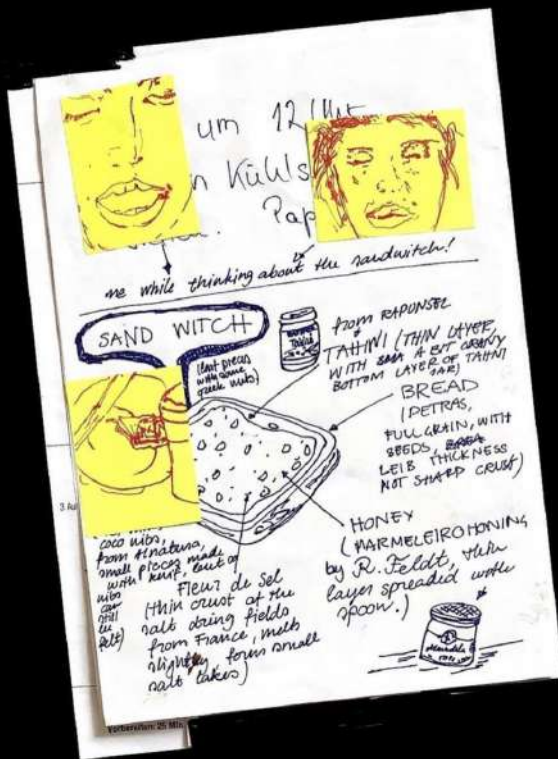 um 12 Uhr
n Kühls
Rap
me while thinking about the sandwitch!
SAND WITCH
(last pieces
with some
greek nuts)
Tahini
from RAPONSEL
TAHINI (THIN LAYER
WITH A BIT GRAINY
BOTTOM LAYER OF TAHNI
JAR)
BREAD
(PETRAS,
FULL GRAIN, WITH
SEEDS,
LEIB THICKNESS
NOT SHARP CRUST)
HONEY
(MARMELEIROHONING
by R. Feldt, thin
layer spreaded with
spoon.)
coco nibs,
from Alnatura,
small pieces made
with knife, but of
nibs
can
still
be
felt)
Fleur de Sel
(thin crust of the
salt drying fields
from France, melts
slightly, forms small
salt takes)
Vorbereiten: 25 Min